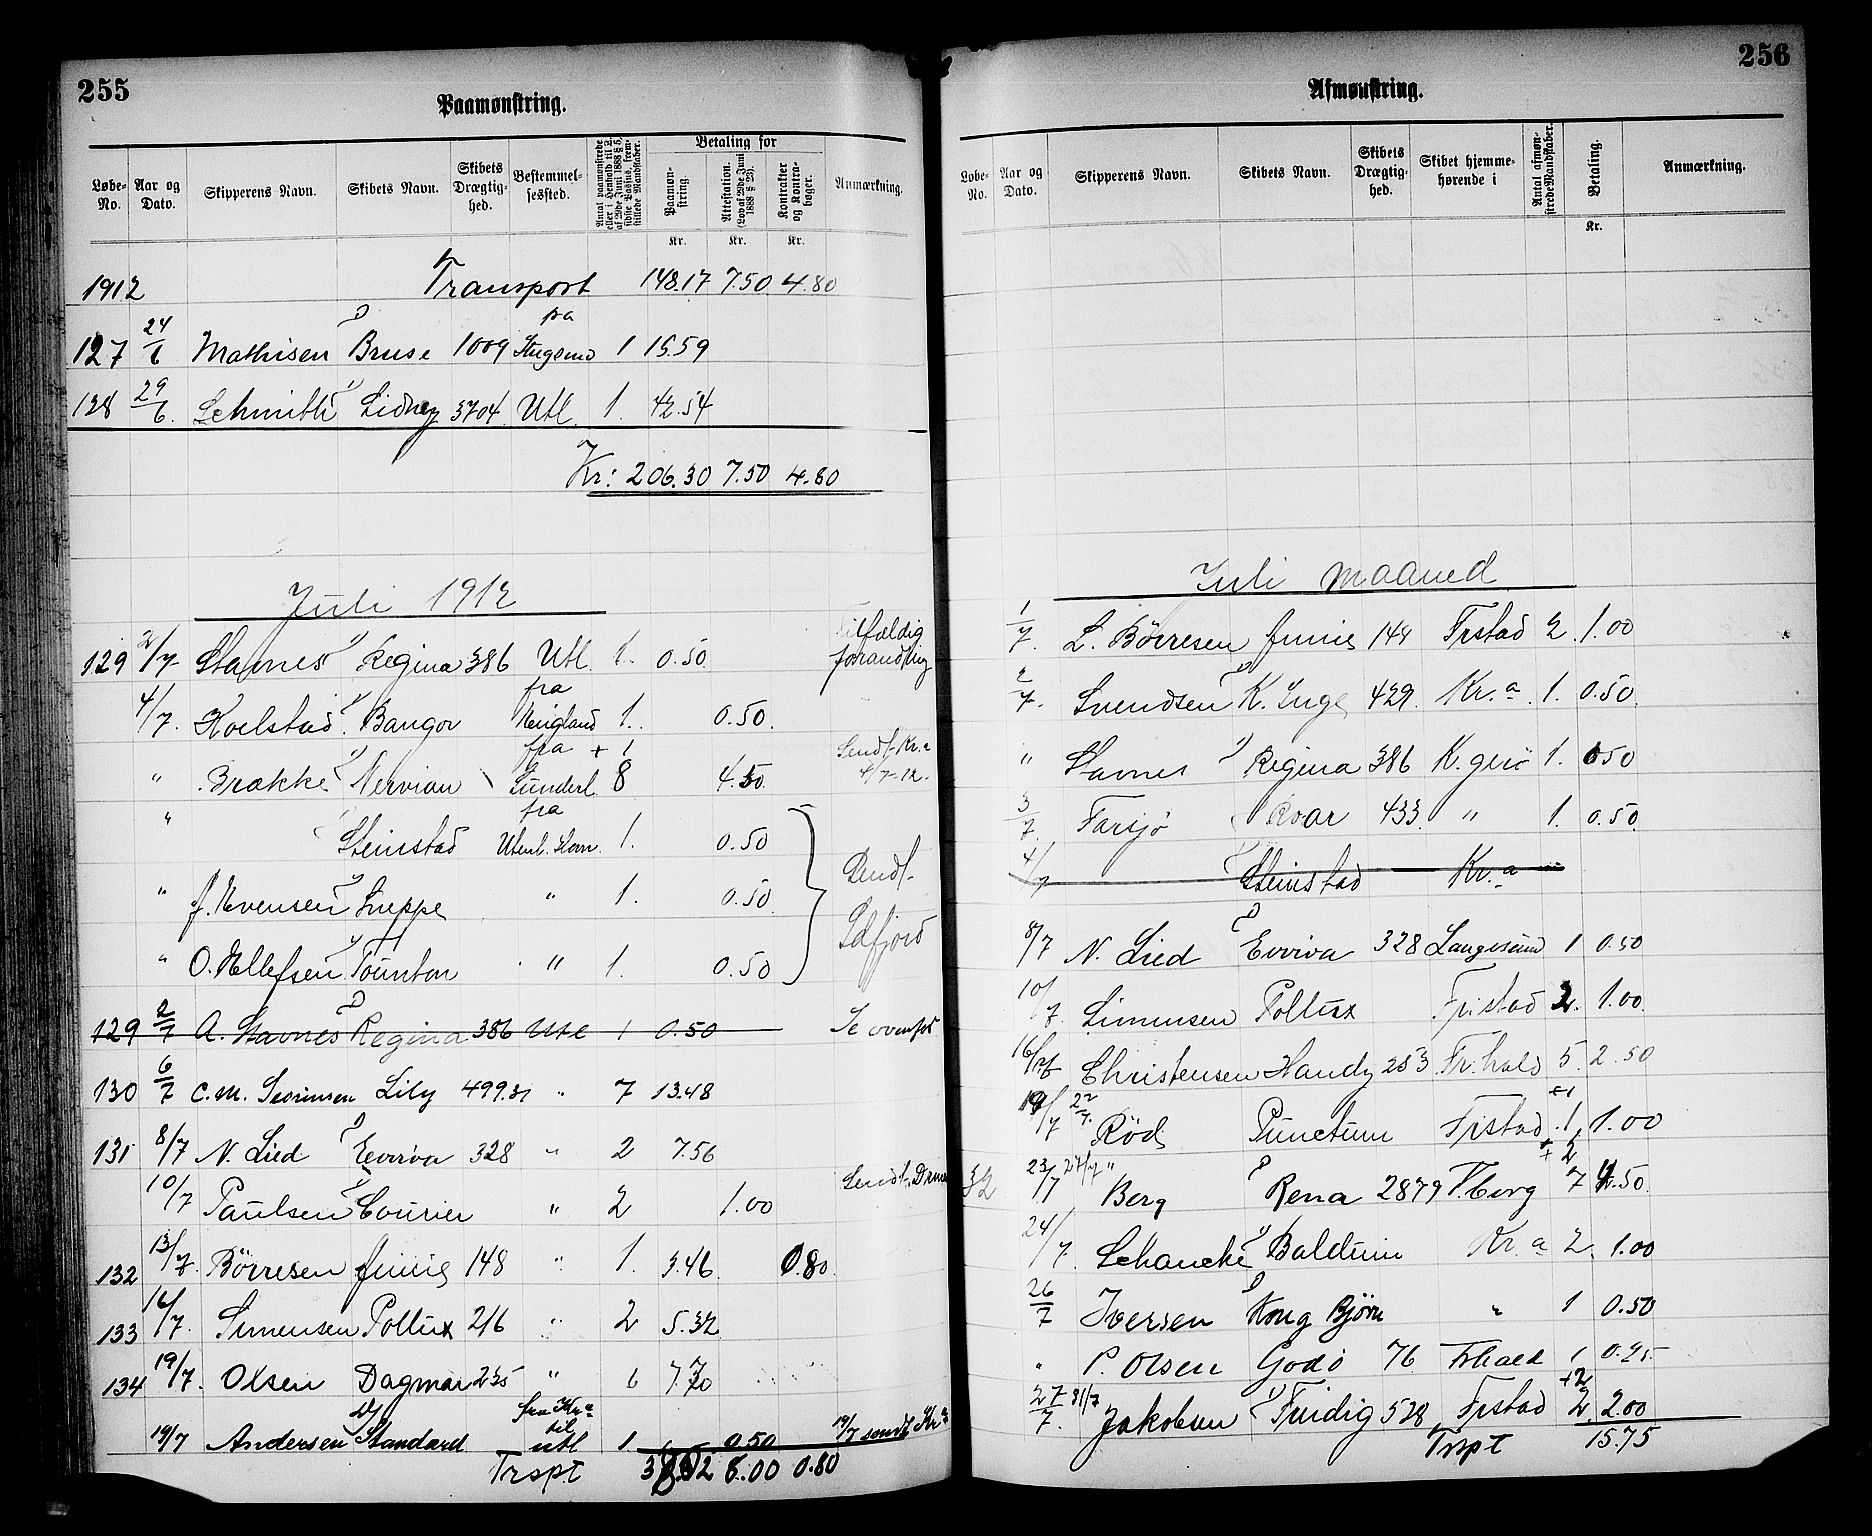 255
Paamønstring.
Løbe-No. Aar og Dato. Skipperens Navn. Skibets Navn. Skibets Drægtig-hed. Bestemmel-sessted. Antal paamønstrede eller i Henhold til Betaling for Paamøn-string. Attestation. (Lov af 29de Juni 1888 § 23). Kontrakter og Kontra-bøger. Anmærkning.
Kr. Kr. Kr.
1912 Transport 148.17 7.50 4.80
127 24/6 Mathisen D Bruse 1009 fra 1 15.59
128 29/6. Schmith Sidney 3704 Utl. 1. 42.54
Kr: 206.30 7.50 4.80
Juli 1912
129 2/7 Stavnes Regina 386 Utl. 1. 0.50. Tilfældig forandring
4/7. Koelstad Bangor fra England 1. 0.50.
" Brække Nervian fra Sunderl. + 1 8 4.50 Sendt Kr.a 4/7-12.
" Steinstad fra 1. 0.50
" J. Evensen Sneppe " 1. 0.50 Sendt
" O. Ellefsen Tounton " 1. 0.50 Idfjord
129 2/7 A. Stavnes D Regina 386 Utl 1 0.50 Se ovenfor
130 6/7 C. M. Sørensen Lily 499.31 " 7 13.48
131 8/7 N. Lied D Evviva 328 " 2 7.56
10/7 Paulsen Courier " 2 1.00 Sendt.
132 13/7. Börresen 148 " 1. 3.46. 0.80.
133 16/7. Simensen Pollux 216 " 2 5.32
134 19/7. Olsen Dagmar 235 " 6 7.70
19/7 Andersen Standard fra Kra til utl 1 0.50 19/7 sendt Kra
Trspt 6.00 0.80
256
Afmønstring.
Løbe-No. Aar og Dato. Skipperens Navn. Skibets Navn. Skibets Drægtig-hed. Skibet hjemme-hørende i Antal afmøn-strede Mandskaber. Betaling. Anmærkning.
Kr.
Juli maaned
1/7. L. Börresen 144 Frstad 2 1.00
2/7. Svendsen K. Inge 429. Kr.a 1. 0.50
" Stavnes Regina 386 K. gerö 1. 0.50
3/7. Farsjö Roar 433. " 1. 0.50.
4/7 Steinstad Kr.a
8/7 N. Lied D Evviva 328 Langesund 1 0.50
10/7. Simensen Pollux Frstad 2. 1.00
16/7 Christensen Handy 253 Fr.hald 5. 2.50
19/7 22/7. Röd Punctum Frstad +1 .1, 1.00
32 23/7 27/7 " Berg D Rena 2879 T.berg + 2 7 4.50
24/7. Schancke Baldum Kr.a 2. 1.00
26/7 Iversen D Kong Bjørn " 1 0.50
" P. Olsen Godö 76 Frhald 1 0.25
27/7. 31/7 Jakobsen Fuidig 528 Frstad +2 2 2.00
Trspt 15.75